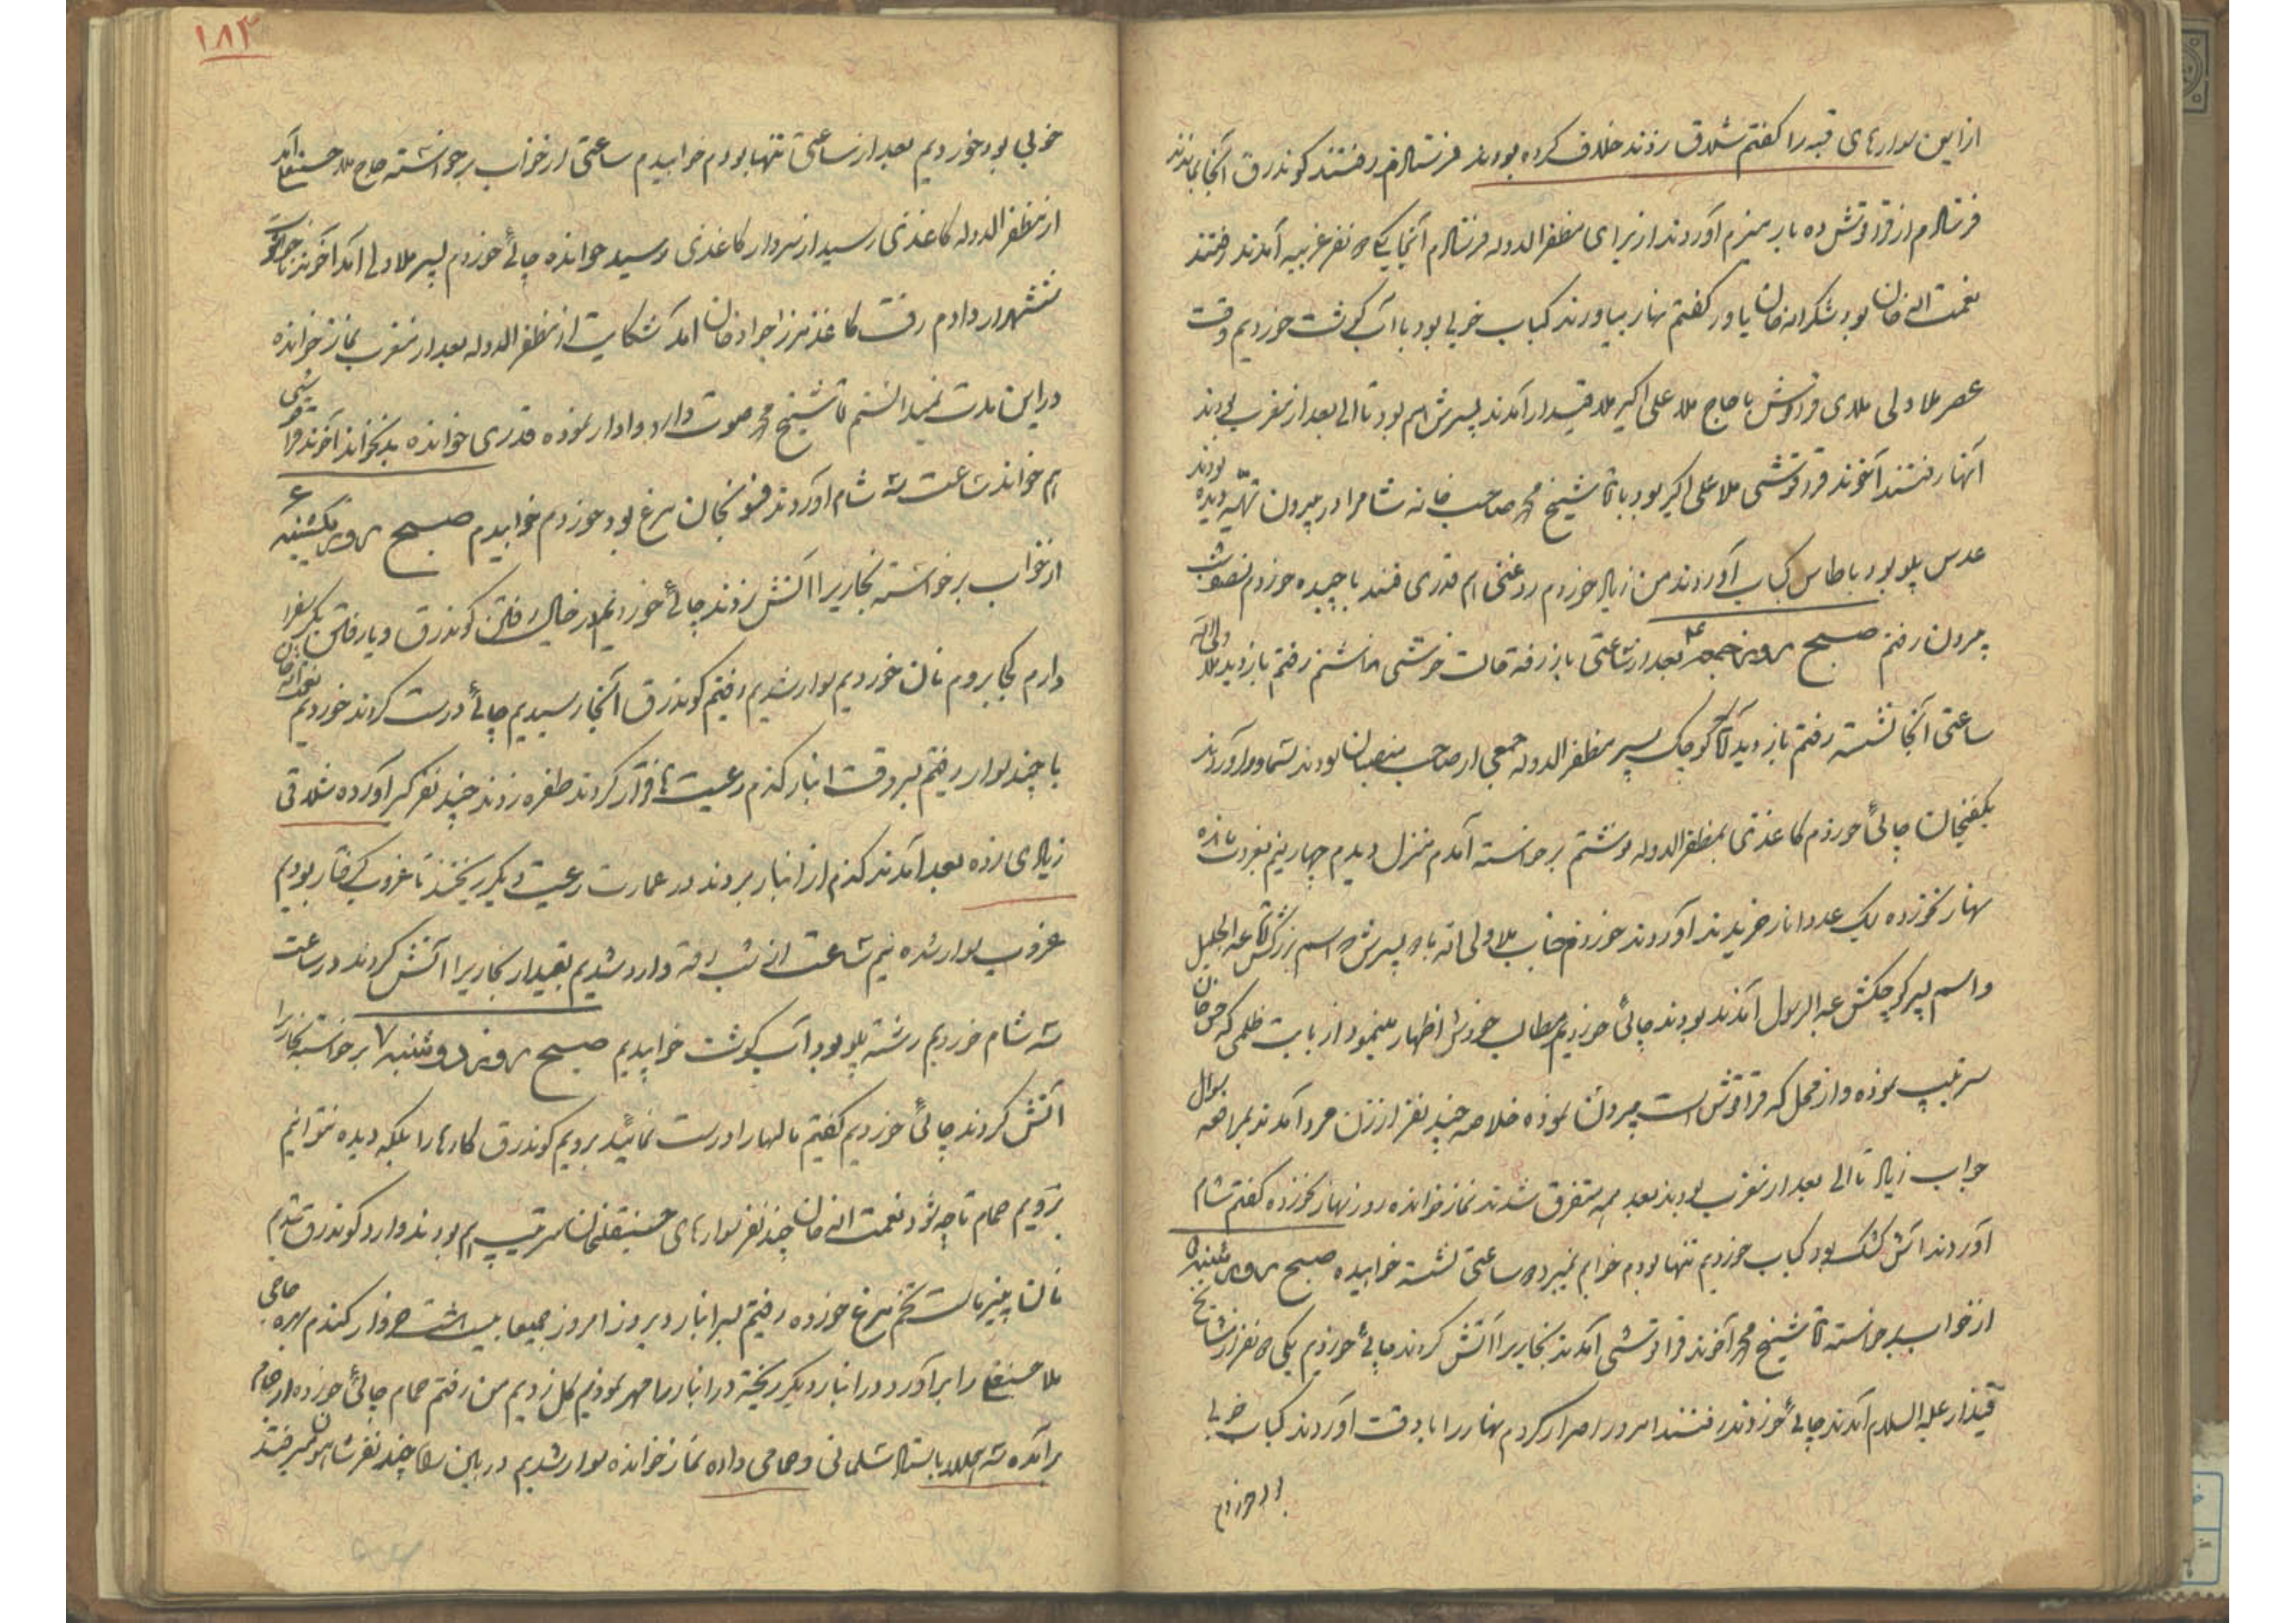 از این سوارهای قبه را گفتم شلاق زدند خلاف کرده بودند فرستادم رفتند کوندرق آنجا بمانند
فرستادم از قراقوش ده بار هیزم آوردند از برای مظفرالدوله فرستادم آنجا یکی دو نفر غریبه آمدند رفتند
نعمت اله خان بود شکراله خان یاور گفتم نهار بیاورند کباب خوبی بود با آب گوشت خوردیم وقت
عصر ملا ولی ملای قراقوش با حاج ملا علی اکبر ملا قیدار آمدند پسرش هم بود تا الی بعد از مغرب بودند
آنها رفتند آخوند قراقوشی ملا علی اکبر بود با آقا شیخ محمد صاحب خانه شام را در بیرون تهیه دیده بودند
عدس پلو بود با طاس کباب آوردند من زیاد خوردم روغنی هم قدری قند با چیده خوردم نصف شب
بیرون رفتم صبح روز جمعه ۴ بعد از ساعتی باز رفته حالت خوشی نداشتم رفتم بازدید ملا ولی اله
ساعتی آنجا نشسته رفتم بازدید آقا کوچک پسر مظفرالدوله جمعی از صاحب منصبان بودند سماور آوردند
یکفنجان چائی خوردم کاغذی بمظفرالدوله نوشتم برخواسته آمدم منزل دیدم چهار نیم بغروب مانده
نهار نخورده یک عدد انار خریدند آوردند خوردم جناب ملا ولی اله با دو پسرش اسم بزرگش آقا عبدالجلیل
و اسم پسر کوچکش عبدالرسول آمدند بودند چائی خوردیم مطالب خودش اظهار مینمود از بابت ظلمی که حسن خان
سرتیپ نموده و از محل که قراقوش است بیرون نموده خلاصه چند نفر از زن مرد آمدند بمرافعه سوال
جواب زیاد تا الی بعد از مغرب بودند بعد همه متفرق شدند نماز خوانده روز نهار نخورده گفتم شام
آوردند آش کشک بود کباب خوردیم تنها بودم خوابم نمیبرد دو ساعتی نشسته خوابیده صبح روز شنبه ۵
از خواب برخواسته آقا شیخ محمد آخوند قراقوشی آمدند بخاریرا آتش کردند چائی خوردیم یکی دو نفر از مشایخ
قیدار علیه السلام آمدند چائی خوردند رفتند امروز اصرار کردم نهار را با دقت آوردند کباب خوبی
بود خوردم
۱۸۳
خوبی بود خوردیم بعد از ساعتی تنها بودم خوابیدم ساعتی از خواب برخواسته حاج ملا حسنعلی آمد
از مظفرالدوله کاغذی رسید از سردار کاغذی رسید خوانده چائی خوردم پسر ملا ولی آمد آخوند
ششهزار دادم رفت کاغذ میرزا جواد خان آمد شکایت از مظفرالدوله بعد از مغرب نماز خوانده
در این مدت نمیدانستم آقا شیخ محمد صوت دارد وادار نموده قدری خوانده بد نخواند آخوند قراقوشی
هم خواند ساعت سه شام آوردند فسنجان مرغ بود خوردم خوابیدم صبح روز یکشنبه ۶
از خواب برخواسته بخاریرا آتش زدند چائی خوردیم در خیال رفتن کوندرق و یا رفتن بکرسف را
دارم کجا بروم نان خوردیم سوار شدیم رفتیم کوندرق آنجا رسیدیم چائی درست کردند خوردیم نعمت اله خان
با چند سوار رفتم سر وقت انبار گندم رعیت ها فرار کردند طفره زدند چند نفر گیر آورده شلاقی
زیادی زده بعد آمدند گندم از انبار بردند در عمارت رعیت دیگر ریختند تا غروب گرفتار بودیم
غروب سوار شده نیم ساعت از شب رفته وارد شدیم بقیدار بخاریرا آتش کردند در ساعت
سه شام خوردیم رشته پلو بود آب گوشت خوابیدیم صبح روز دوشنبه ۷ برخواسته بخاریرا
آتش کردند چائی خوردیم گفتیم مالها را درست نمائید برویم کوندرق کارها را بلکه دیده بتوانیم
برویم حمام تا چه شود نعمت اله خان چند نفر سوارهای حسنقلیخان سرتیپ هم بودند وارد کوندرق شدیم
نان پنیر ماست تخم مرغ خورده رفتیم سر انبار دیروز امروز جمیعا بیست هشت خروار گندم بهره حاجی
ملا حسنعلی را برآورد در انبار دیگر ریخته در انبار را مهر نمودیم گل زدیم من رفتم حمام چائی خورده از حمام
برآمده سه هزار باستاد سلمانی و حمامی داده نماز خوانده سوار شدیم در بین راه چند نفر شاهسون میرفتند